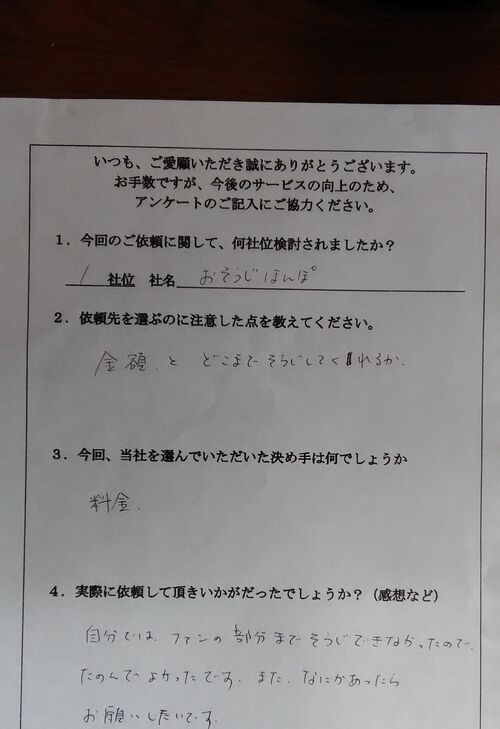 いつも、ご愛顧いただき誠にありがとうございます。
お手数ですが、今後のサービスの向上のため、
アンケートのご記入にご協力ください。
1．今回のご依頼に関して、何社位検討されましたか？
1 社位 社名 おそうじほんぽ
2．依頼先を選ぶのに注意した点を教えてください。
金額 と どこまでそうじしてくれるか.
3．今回、当社を選んでいただいた決め手は何でしょうか
料金.
4．実際に依頼して頂きいかがだったでしょうか？（感想など）
自分では、ファンの部分までそうじできなかったので、
たのんでよかったです. また、なにかあったら
お願いしたいです.